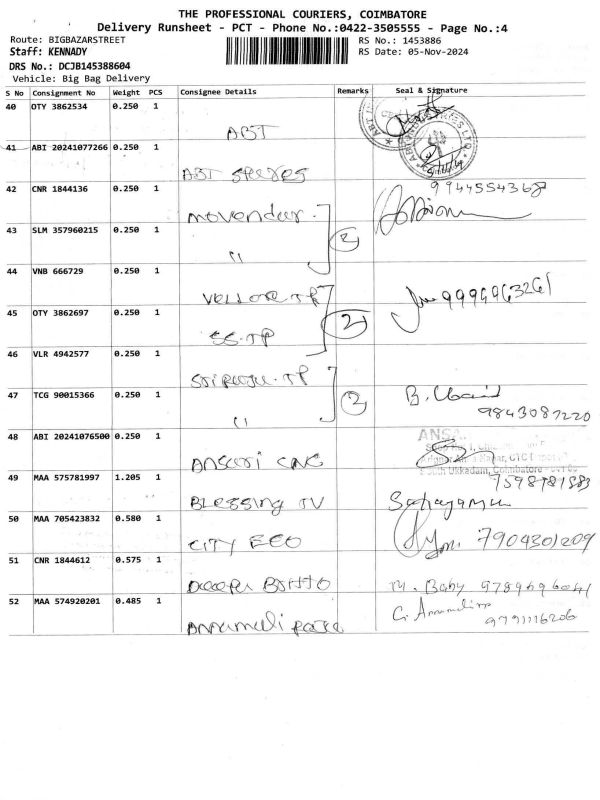 THE PROFESSIONAL COURIERS, COIMBATORE
Delivery Runsheet - PCT - Phone No.:0422-3505555 - Page No.:4
Route: BIGBAZARSTREET
RS No.: 1453886
Staff: KENNADY
RS Date: 05-Nov-2024
DRS No.: DCJB145388604
Vehicle: Big Bag Delivery
S No Consignment No Weight PCS Consignee Details Remarks Seal & Signature
40 OTY 3862534 0.250 1
ABT
41 ABI 20241077266 0.250 1
ABT
42 CNR 1844136 0.250 1
9944554368
movendar
43 SLM 357960215 0.250 1
2
"
44 VNB 666729 0.250 1
Vellore TP
9994963261
45 OTY 3862697 0.250 1
2
SS. TP
46 VLR 4942577 0.250 1
TP
47 TCG 90015366 0.250 1
2
B.
9843087220
"
48 ABI 20241076500 0.250 1
ANSA
Ukkadam, Coimbatore
Ansari CNC
49 MAA 575781997 1.205 1
Blessing TV
50 MAA 705423832 0.580 1
7904301209
CITY ECO
51 CNR 1844612 0.575 1
Deepu
M. Baby 9789696041
52 MAA 574920201 0.485 1
9791116206